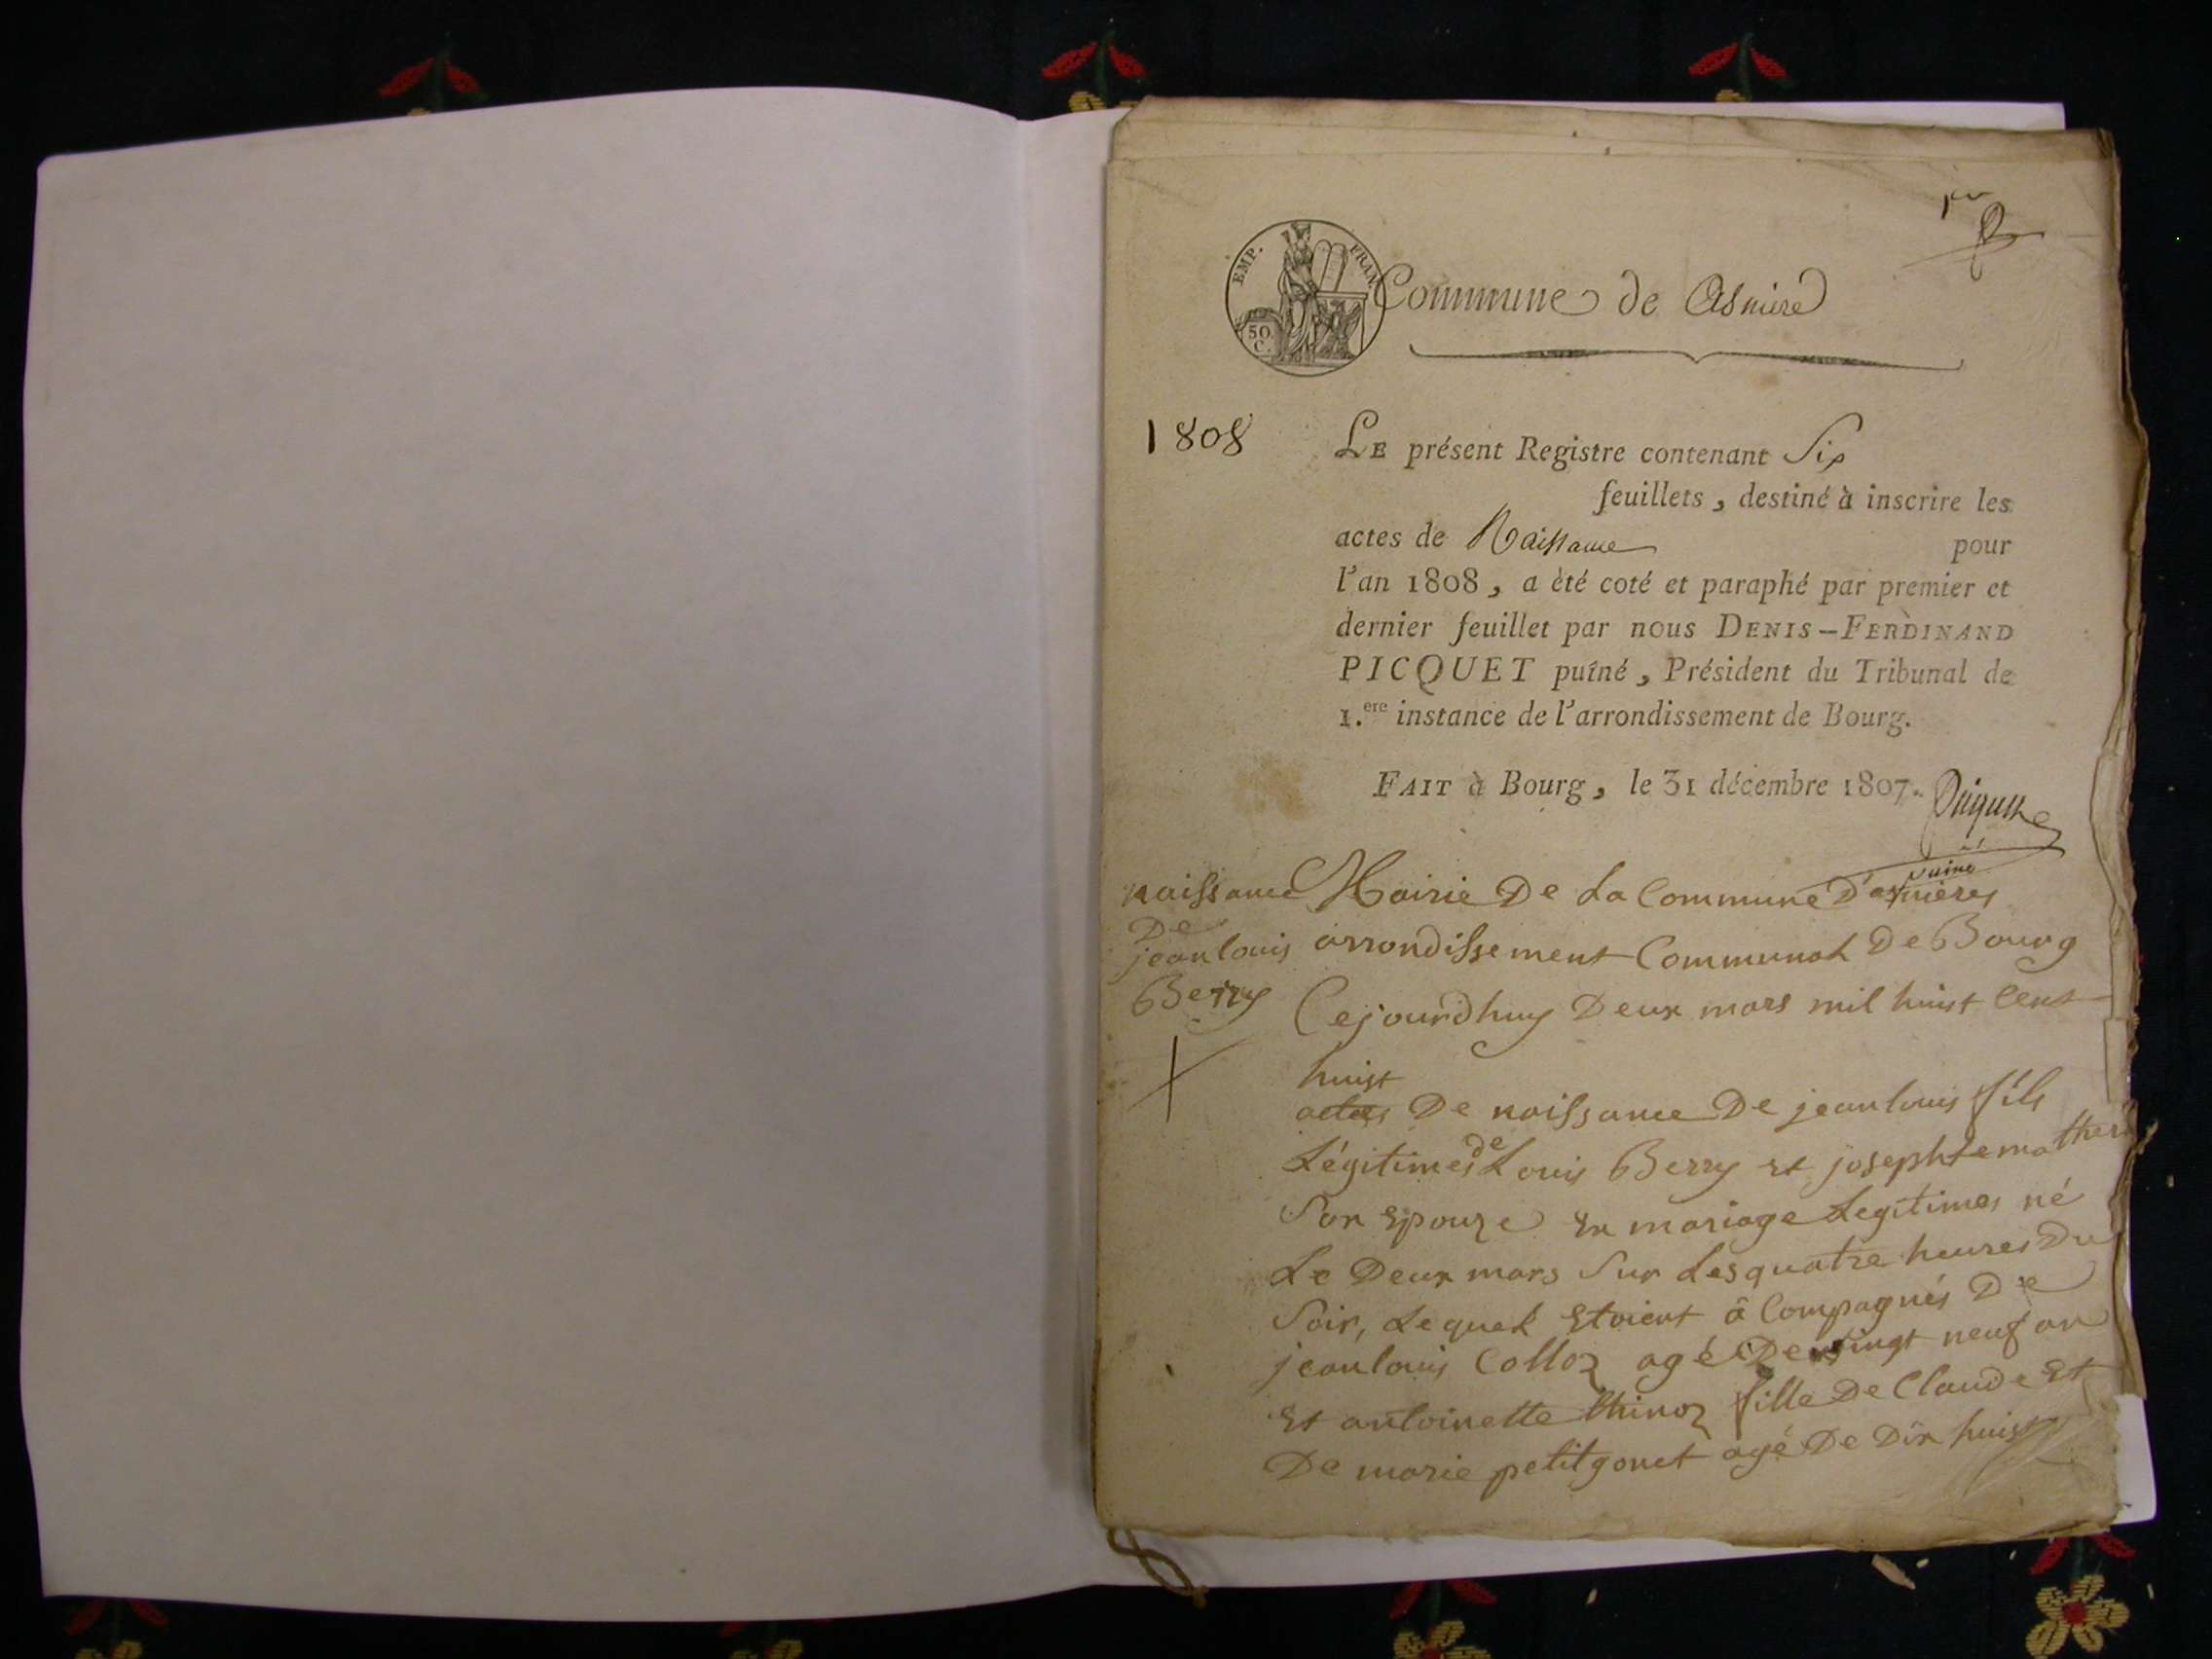 1er
EMP. FRAN.
50 C.
Commune de Asniere
1808
LE présent Registre contenant Six
feuillets, destiné à inscrire les
actes de Naissance pour
l'an 1808, a été coté et paraphé par premier et
dernier feuillet par nous DENIS-FERDINAND
PICQUET puîné, Président du Tribunal de
1.ere instance de l'arrondissement de Bourg.
FAIT à Bourg, le 31 décembre 1807.
Picquet
puiné
naissance
De
jean louis
Berry
Mairie De La Commune D'asnieres
arrondissement Communal De Bourg
Cejourdhuy Deux mars mil huist Cent
huist
actes De naissance De jean louis fils
Légitimes de Louis Berry et josephte mather
Son Epouze En mariage Legitimes né
Le Deux mars Sur Les quatre heures Du
Soir, Le quel Etoient â Compagnés De
jean louis Colloz agé De vingt neuf an
Et antoinette thinoz fille De Claude Et
De marie petitgonet agé De Dix huist